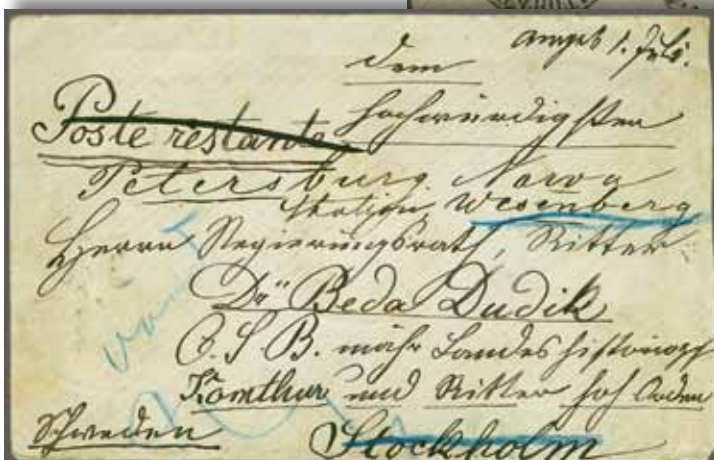 angek 1. Juli.
dem
hochwürdigsten
Poste restante
Petersburg. Narva
Station Wesenberg
Herrn Regierungsrath, Ritter
Dr Beda Dudik
O. S. B. mähr Landeshistoriogr
Komthur und Ritter hoh Orden
Schweden
Stockholm